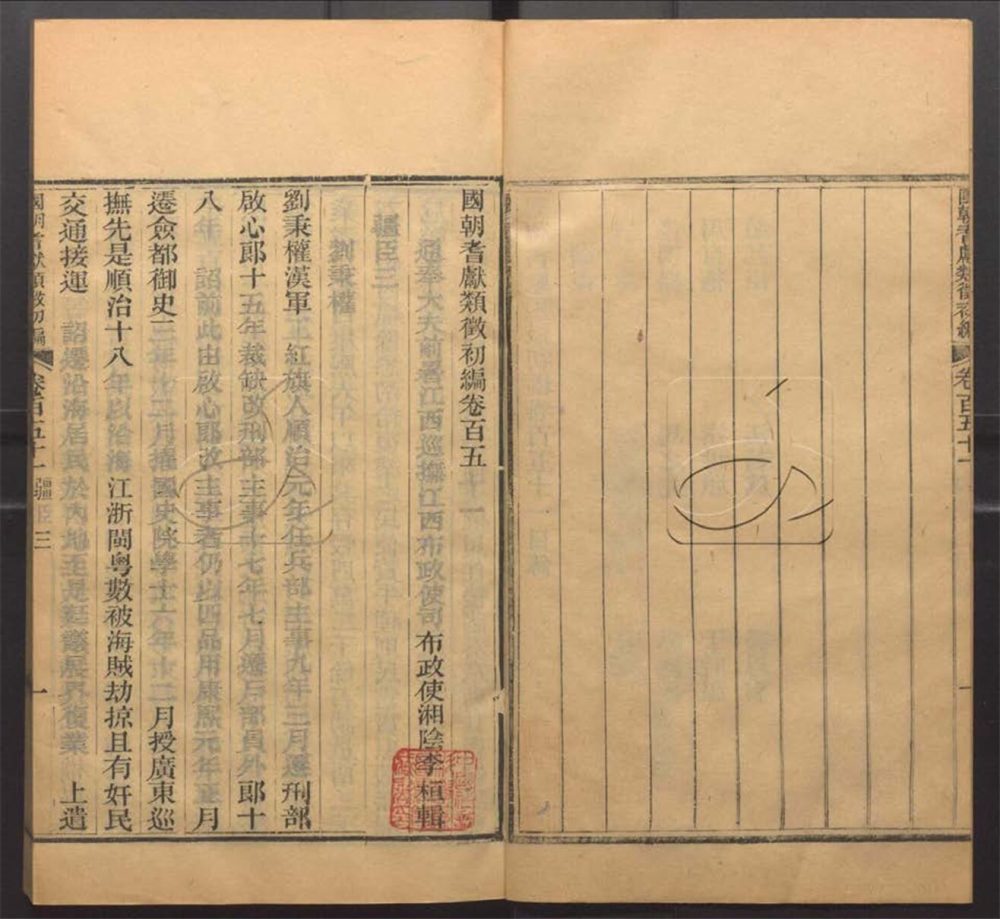 國朝耆獻類徵初編 卷百五十一
一
國朝耆獻類徵初編卷百五十一
通奉大夫前署江西巡撫江西布政使司布政使湘陰李桓輯
疆臣三
劉秉權
劉秉權漢軍正紅旗人順治元年任兵部主事九年三月遷刑部
啟心郎十五年裁缺改刑部主事十七年七月遷戶部員外郎十
八年 詔前此由啟心郎改主事者仍以四品用康熙元年正月
遷僉都御史三年 月擢國史院學士六年十二月授廣東巡
撫先是順治十八年以沿海江浙閩粵數被海賊劫掠且有奸民
交通接運 詔遷沿海居民於內地至是廷議展界復業 上遣
國朝耆獻類徵初編 卷百五十一 疆臣三 一